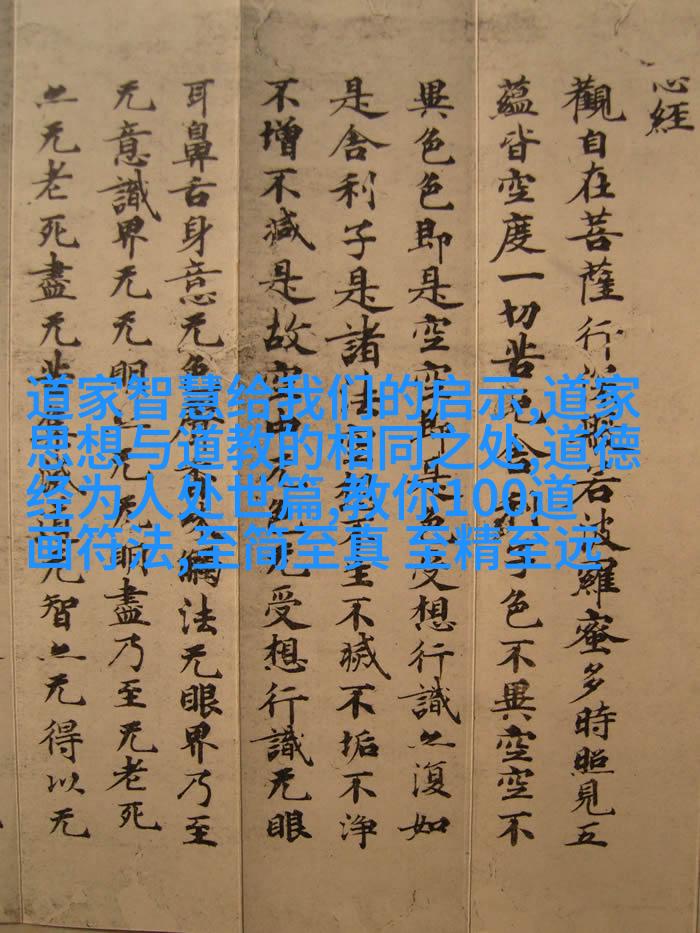 心經
觀自在菩薩行若波羅蜜多時照見五
蘊皆空度一切苦色不異空空不
異色色即是空空受想行識亦復如
是舍利子是諸不滅不垢不淨
不增不減是故空无受想行識无眼
耳鼻舌身意无色觸法无眼界乃至
无意識界无无明亦无无明盡乃至无老死
亦无老死盡无智亦无得以无
道家智慧给我们的启示,道家
思想与道教的相同之处,道德
经为人处世篇,教你100道
画符法,至简至真 至精至远